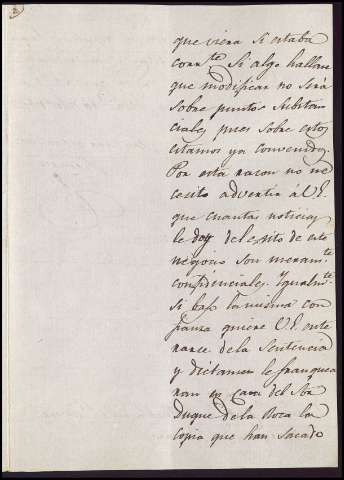 que viera si estaba
corrte. Si algo hallare
que modificar no será
sobre puntos substan
ciales, pues sobre estos
estamos ya convenidos.
Por esta razon no ne
cesito advertir á V.E.
que cuantas noticias
le doy del exito de este
negocio son meramte
confidenciales. Igualmte
si bajo la misma con
fianza quiere V.E. ente
rarse de la Sentencia
y dictamen le franquea
ran en casa del Sr.
Duque de la Roca la
copia que han sacado